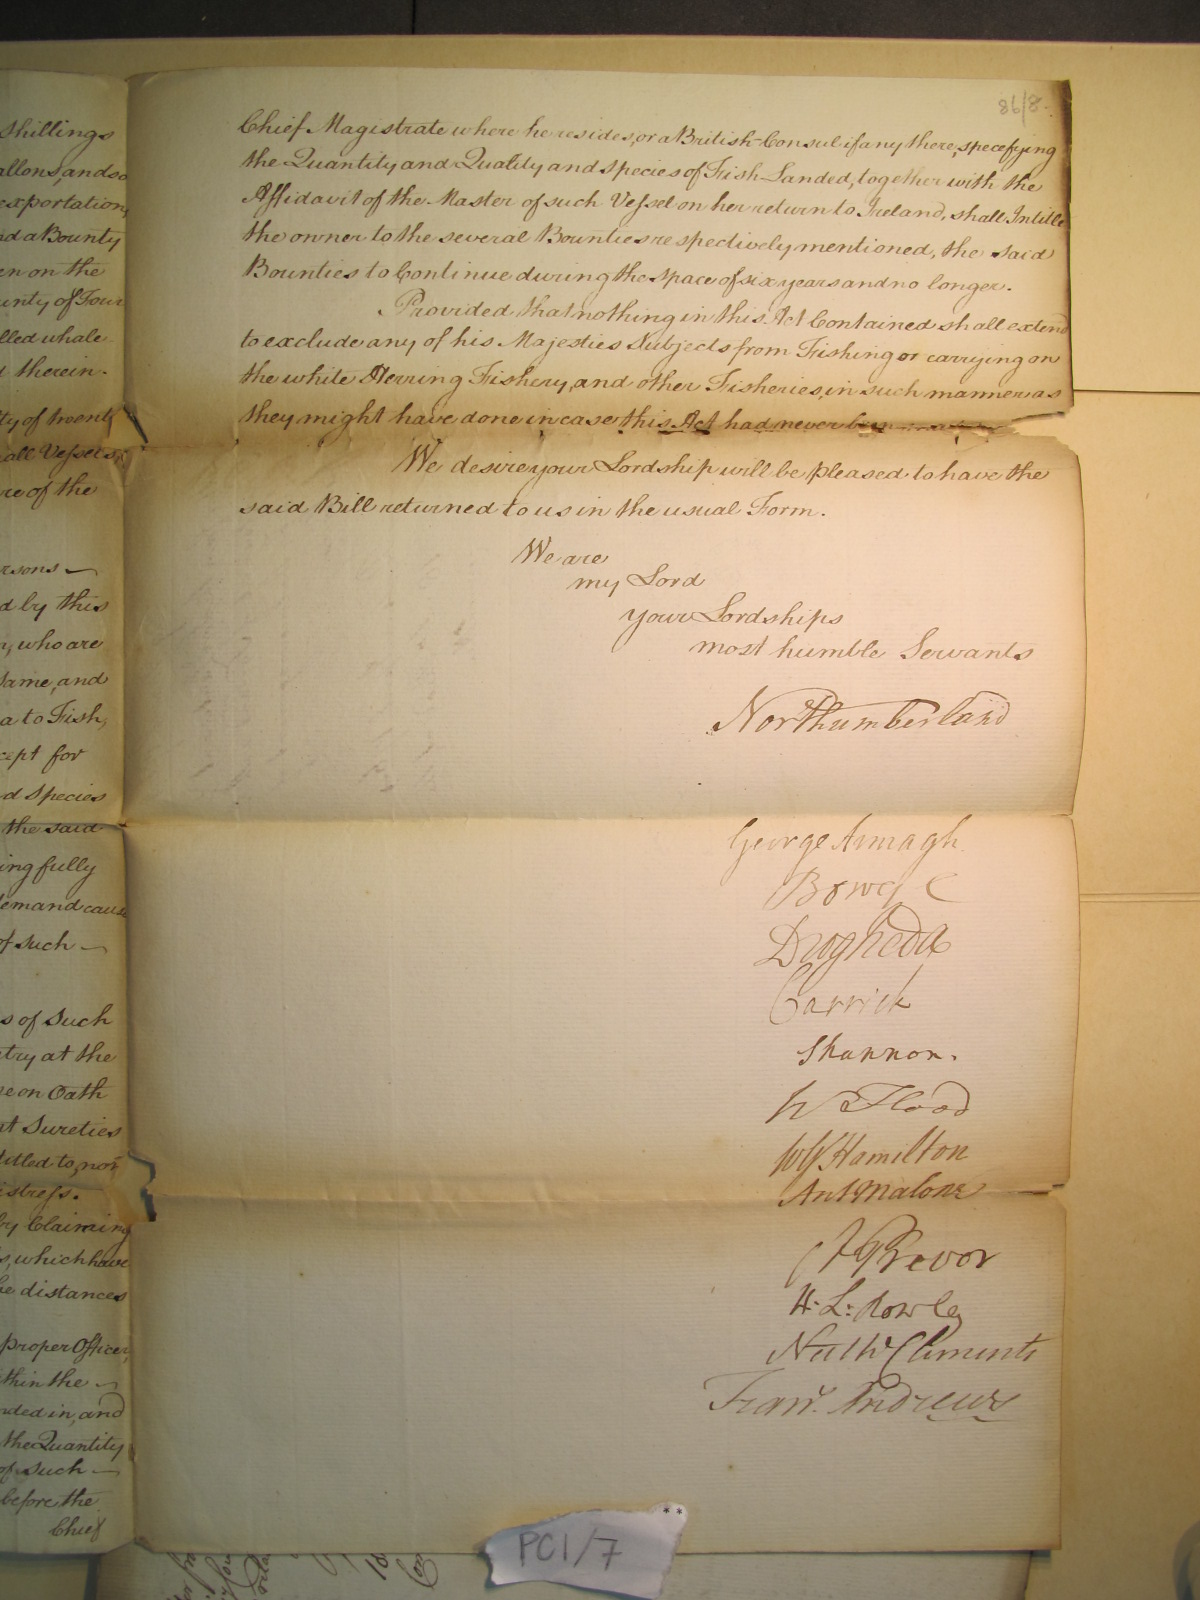 shillings
allons, and so
exportation,
nd a Bounty
en on the
unty of Four
lled whale
d therein.
ty of twenty
all Vessels,
re of the
rsons
d by this
n, who are
same, and
a to Fish,
cept for
d Species
the said
ing fully
demand cause
of such
s of such
try at the
e on Oath
nt Sureties
titled to, nor
istress.
by Claiming
s, which have
he distances
proper Officer,
ithin the
nded in, and
the Quantity
of such
before the
Chief
86/8.
Chief Magistrate where he resides, or a British Consul if any there, specefying
the Quantity and Quality and species of Fish Landed, together with the
Affidavit of the Master of such Vessel on her return to Ireland, shall Intitle
the owner to the several Bounties respectively mentioned, the said
Bounties to Continue during the space of six years and no longer.
Provided that nothing in this Act Contained shall extend
to exclude any of his Majesties Subjects from Fishing or carrying on
the white Herring Fishery, and other Fisheries, in such manner as
they might have done in case this Act had never been
We desire your Lordship will be pleased to have the
said Bill returned to us in the usual Form.
We are
my Lord
your Lordships
most humble Servants
Northumberland
George Armagh
Bowes C
Drogheda
Carrick
Shannon.
Flood
Hamilton
Ant Malone
Trevor
H: L: Rowley
Clements
Andrews
PC1/7